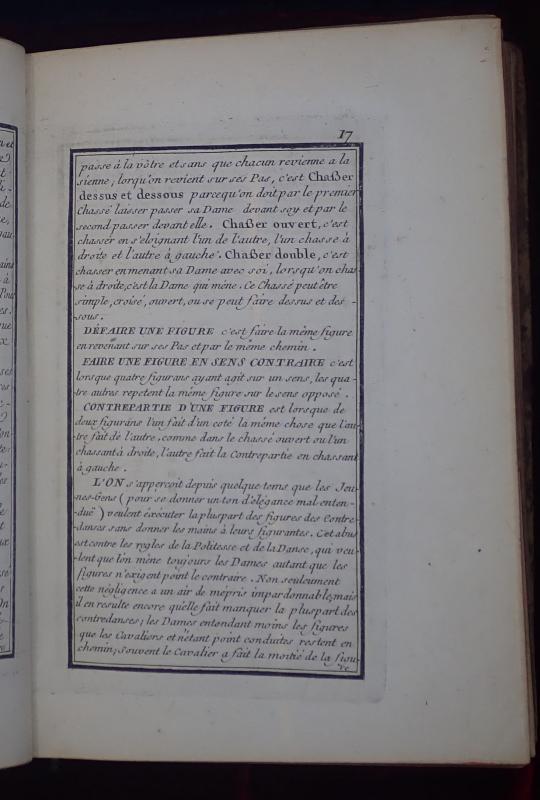 17
passe à la vôtre et sans que chacun revienne a la
sienne; lorsqu'on revient sur ses Pas, c'est Chaßer
dessus et dessous parcequ'on doit par le premier
Chassé laisser passer sa Dame devant soy et par le
second passer devant elle. Chaßer ouvert, c'est
chasser en s'eloignant l'un de l'autre, l'un chasse à
droite et l'autre à gauche. Chaßer double, c'est
chasser en menant sa Dame avec soi, lorsqu'on chas
se à droite, c'est la Dame qui méne. Ce Chassé peut être
simple, croisé, ouvert, ou se peut faire dessus et des-
-sous.
DÉFAIRE UNE FIGURE c'est faire la même figure
en revenant sur ses Pas et par le même chemin.
FAIRE UNE FIGURE EN SENS CONTRAIRE c'est
lorsque quatre figurans ayant agit sur un sens, les qua-
tre autres repetent la même figure sur le sens opposé.
CONTREPARTIE D'UNE FIGURE est lorsque de
deux figurans l'un fait d'un coté la même chose que l'au-
tre fait de l'autre, comme dans le chassé ouvert ou l'un
chassant à droite, l'autre fait la Contrepartie en chassant
à gauche.
L'ON s'apperçoit depuis quelque tems que les Jeu-
nes-Gens (pour se donner un ton d'élégance mal-enten-
-duë) veulent éxécuter la pluspart des figures des Contre-
-danses sans donner les mains à leurs figurantes. Cet abus
est contre les regles de la Politesse et de la Danse, qui veu-
-lent que l'on mène toujours les Dames autant que les
figures n'exigent point le contraire. Non seulement
cette négligence a un air de mépris impardonnable, mais
il en resulte encore qu'elle fait manquer la pluspart des
contredanses; les Dames entendant moins les figures
que les Cavaliers et n'étant point conduites restent en
chemin; souvent le Cavalier a fait la moitié de la figu-
re